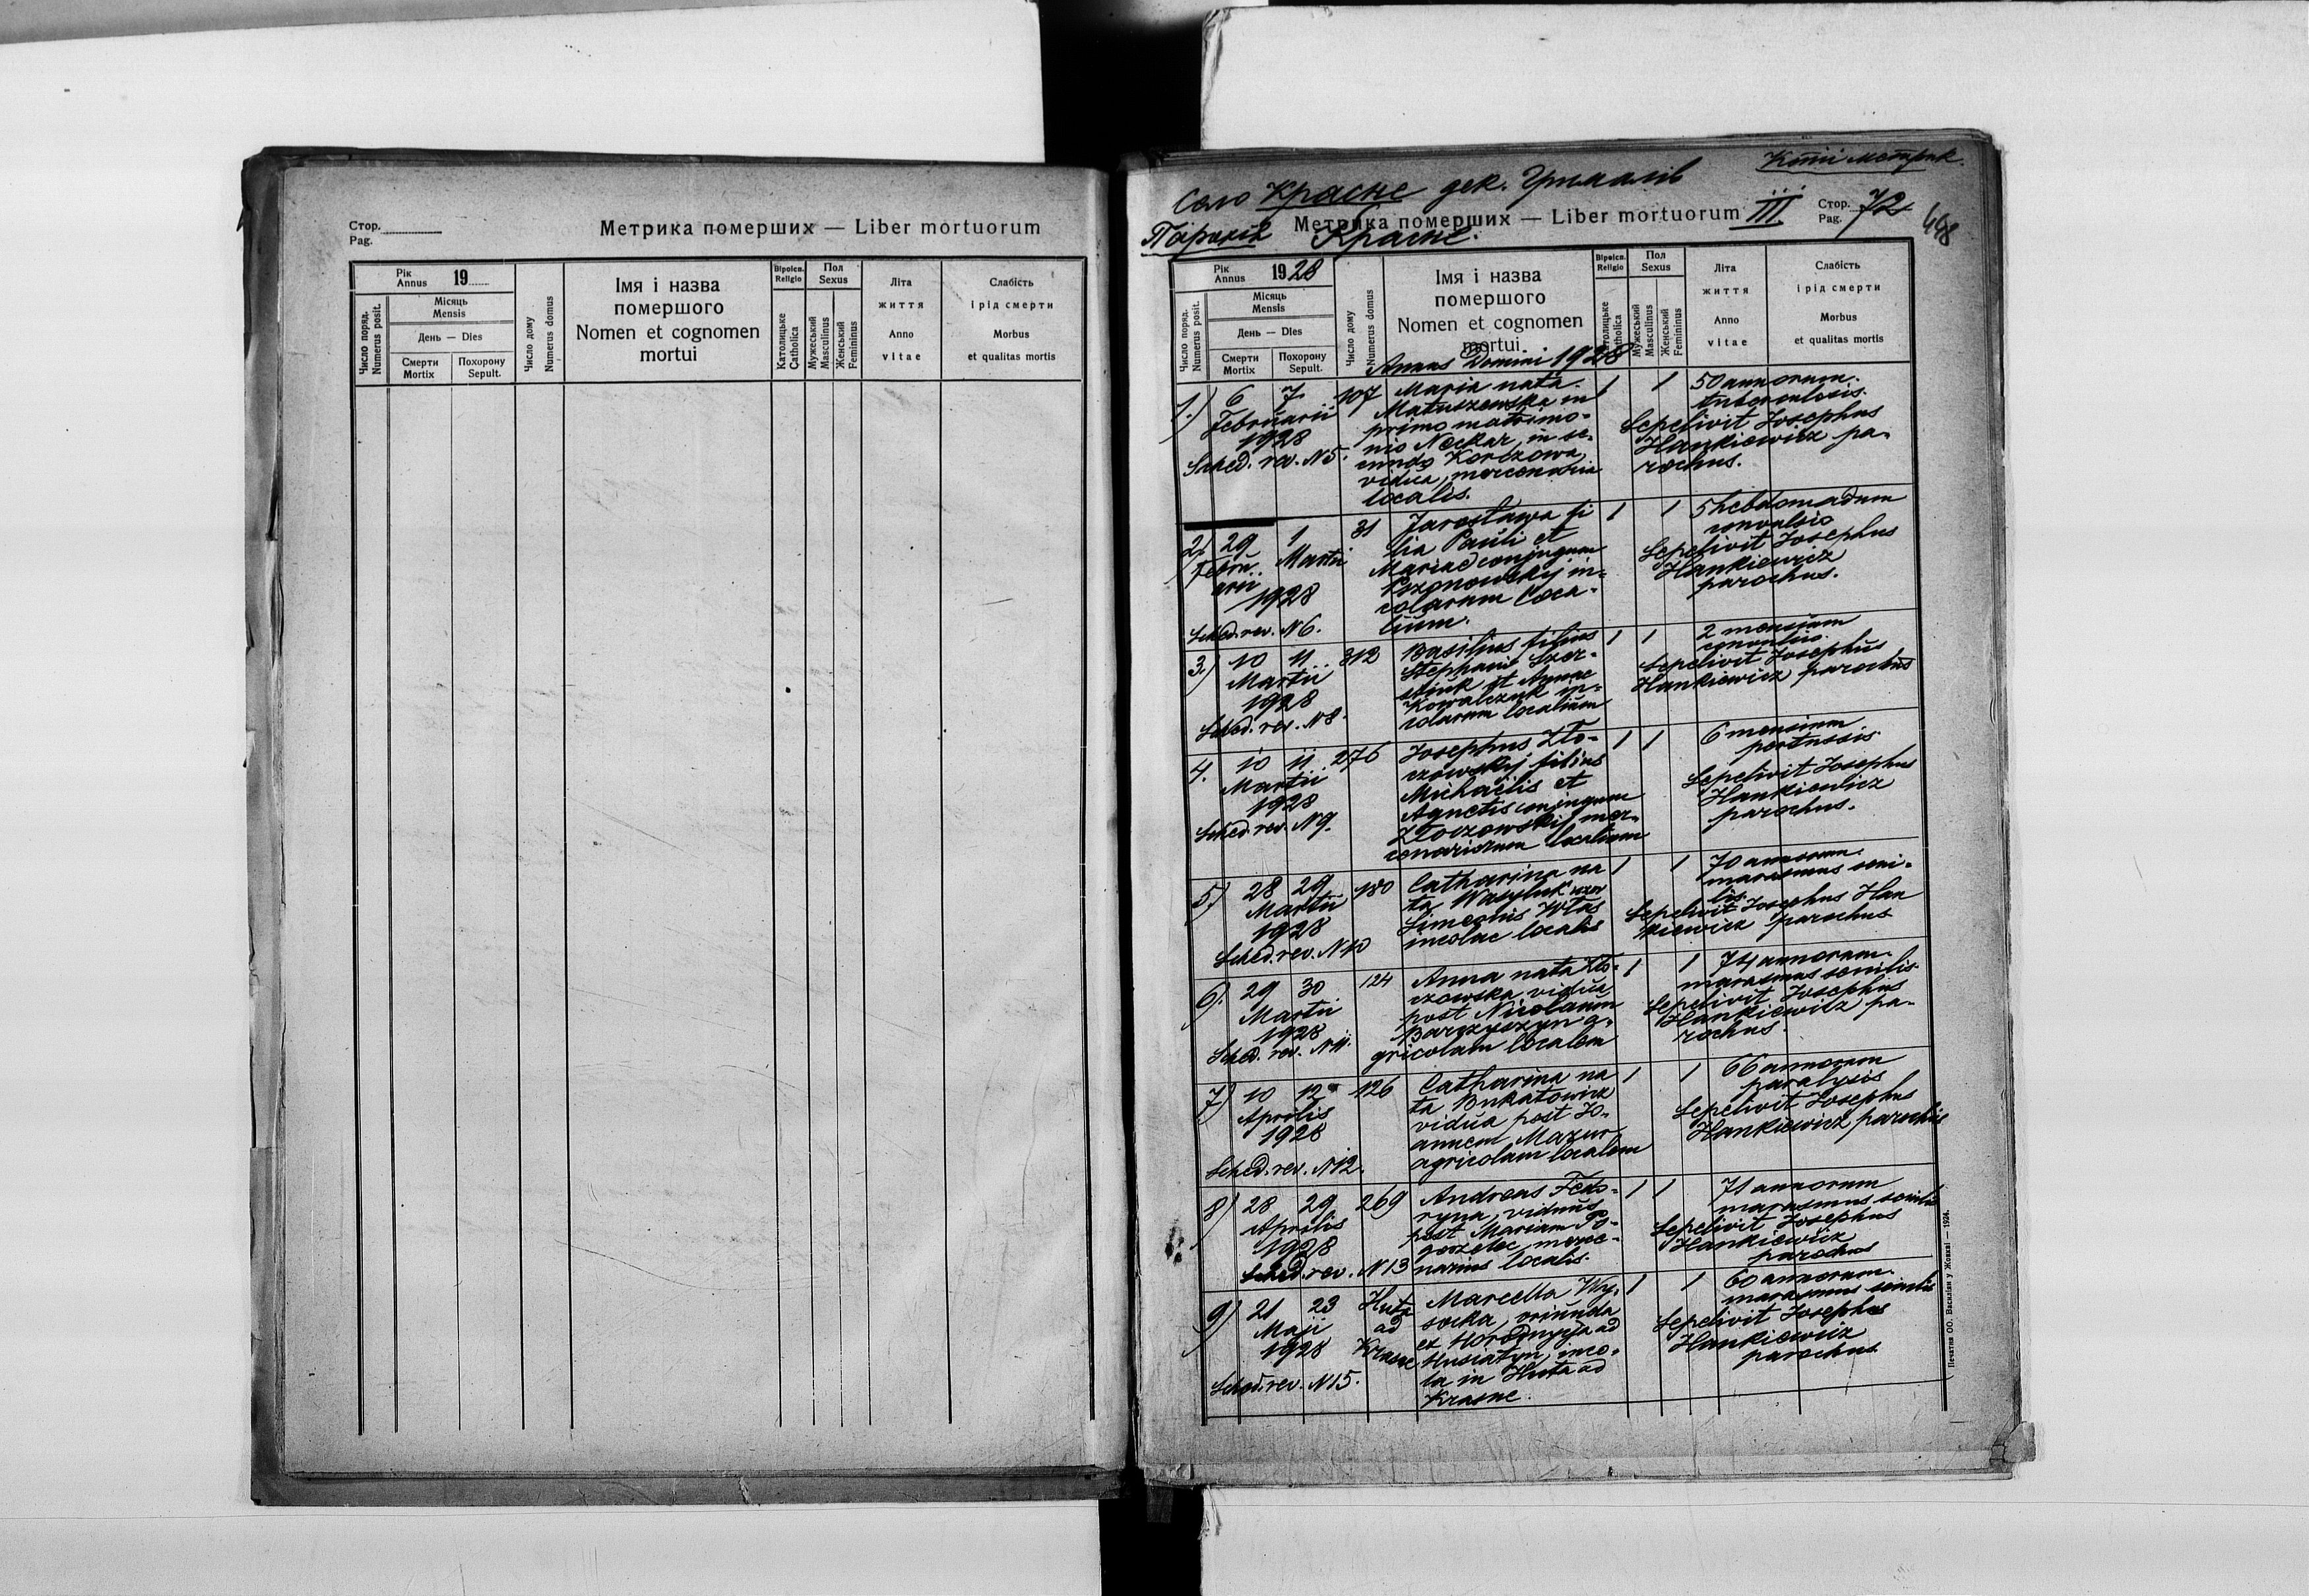 Стор.
Pag.
Метрика померших — Liber mortuorum
Рік
Annus 19
Місяць
Mensis
День — Dies
Смерти
Mortix
Похорону
Sepult.
Число поряд.
Numerus posit.
Число дому
Numerus domus
Імя і назва
помершого
Nomen et cognomen
mortui
Віроісп.
Religio
Католицьке
Catholica
Пол
Sexus
Мужеський
Masculinus
Женський
Femininus
Літа
життя
Anno
vitae
Слабість
і рід смерти
Morbus
et qualitas mortis
Копії метрик.
Село Красне дек. Гримайлів
Метрика померших — Liber mortuorum III
Стор.
Pag. 72
448
Парохія Красне.
Рік
Annus 1928
Місяць
Mensis
День — Dies
Смерти
Mortix
Похорону
Sepult.
Число поряд.
Numerus posit.
Число дому
Numerus domus
Імя і назва
помершого
Nomen et cognomen
mortui
Віроісп.
Religio
Католицьке
Catholica
Пол
Sexus
Мужеський
Masculinus
Женський
Femininus
Літа
життя
Anno
vitae
Слабість
і рід смерти
Morbus
et qualitas mortis
Annus Domini 1928
1.) 6 7 107 Maria nata 1 1 50 annorum.
Februarii Matuszewska in tuberculosis.
1928 primo matrimo- Sepelivit Josephus
Sched. rev. N5. nio Neckar, in se- Hankiewicz pa-
cundo Korczowa, rochus.
vidua, mercenaria
localis.
2) 29 1 31 Jarosława fi 1 1 5 hebdomadum
Febru- Martii lia Pauli et convulsio
arii Mariae conjugum Sepelivit Josephus
1928 in- Hankiewicz
colarum loca- parochus.
Sched. rev. N6. lium.
3.) 10 11 312 Basilius filius 1 1 2 mensium
Martii Stephani Szer- convulsio.
1928 et Annae Sepelivit Josephus
Sched. rev. N8. Kowalczuk in- Hankiewicz parochus
colarum localium
4. 10 11 276 Josephus Zło- 1 1 6 mensium
Martii czowskij filius pertussis
1928 Michaëlis et Sepelivit Josephus
Sched. rev. N9. Agnetis conjugum Hankiewicz
Złoczowskij mer- parochus.
cenariorum localium
5) 28 29 180 Catharina na 1 1 70 annorum.
Martii ta Wasyluk uxor marasmus seni-
1928 Simeonis Włas lis.
Sched. rev. N10 incolae localis Sepelivit Josephus Han
kiewicz parochus
6). 29 30 124 Anna nata Zło- 1 1 74 annorum.
Martii czowska, vidua marasmus senilis
1928 post Nicolaum Sepelivit Josephus
Sched. rev. N11. Barczyczyn a- Hankiewicz pa-
gricolam localem rochus.
7) 10 12 126 Catharina na 1 1 66 annorum
Aprilis ta Bukatowicz paralysis
1928 vidua post Jo- Sepelivit Josephus
annem Mazur Hankiewicz parochus
Sched. rev. N12. agricolam localem
8) 28 29 269 Andreas Fedo- 1 1 71 annorum
Aprilis ryna, viduus marasmus senilis
1928 post Mariam Po- Sepelivit Josephus
Sched. rev. N13 gorzelec, merce- Hankiewicz
narius localis. parochus
9) 21 23 Huta Marcella Wy- 1 1 60 annorum.
Maji ad socka, oriunda marasmus senilis
1928 Krasne ex Horodnycja ad Sepelivit Josephus
Husiatyn, inco- Hankiewicz
Sched. rev. N15. la in Huta ad parochus
Krasne.
Печатня ОО. Василіян у Жовкві — 1924.